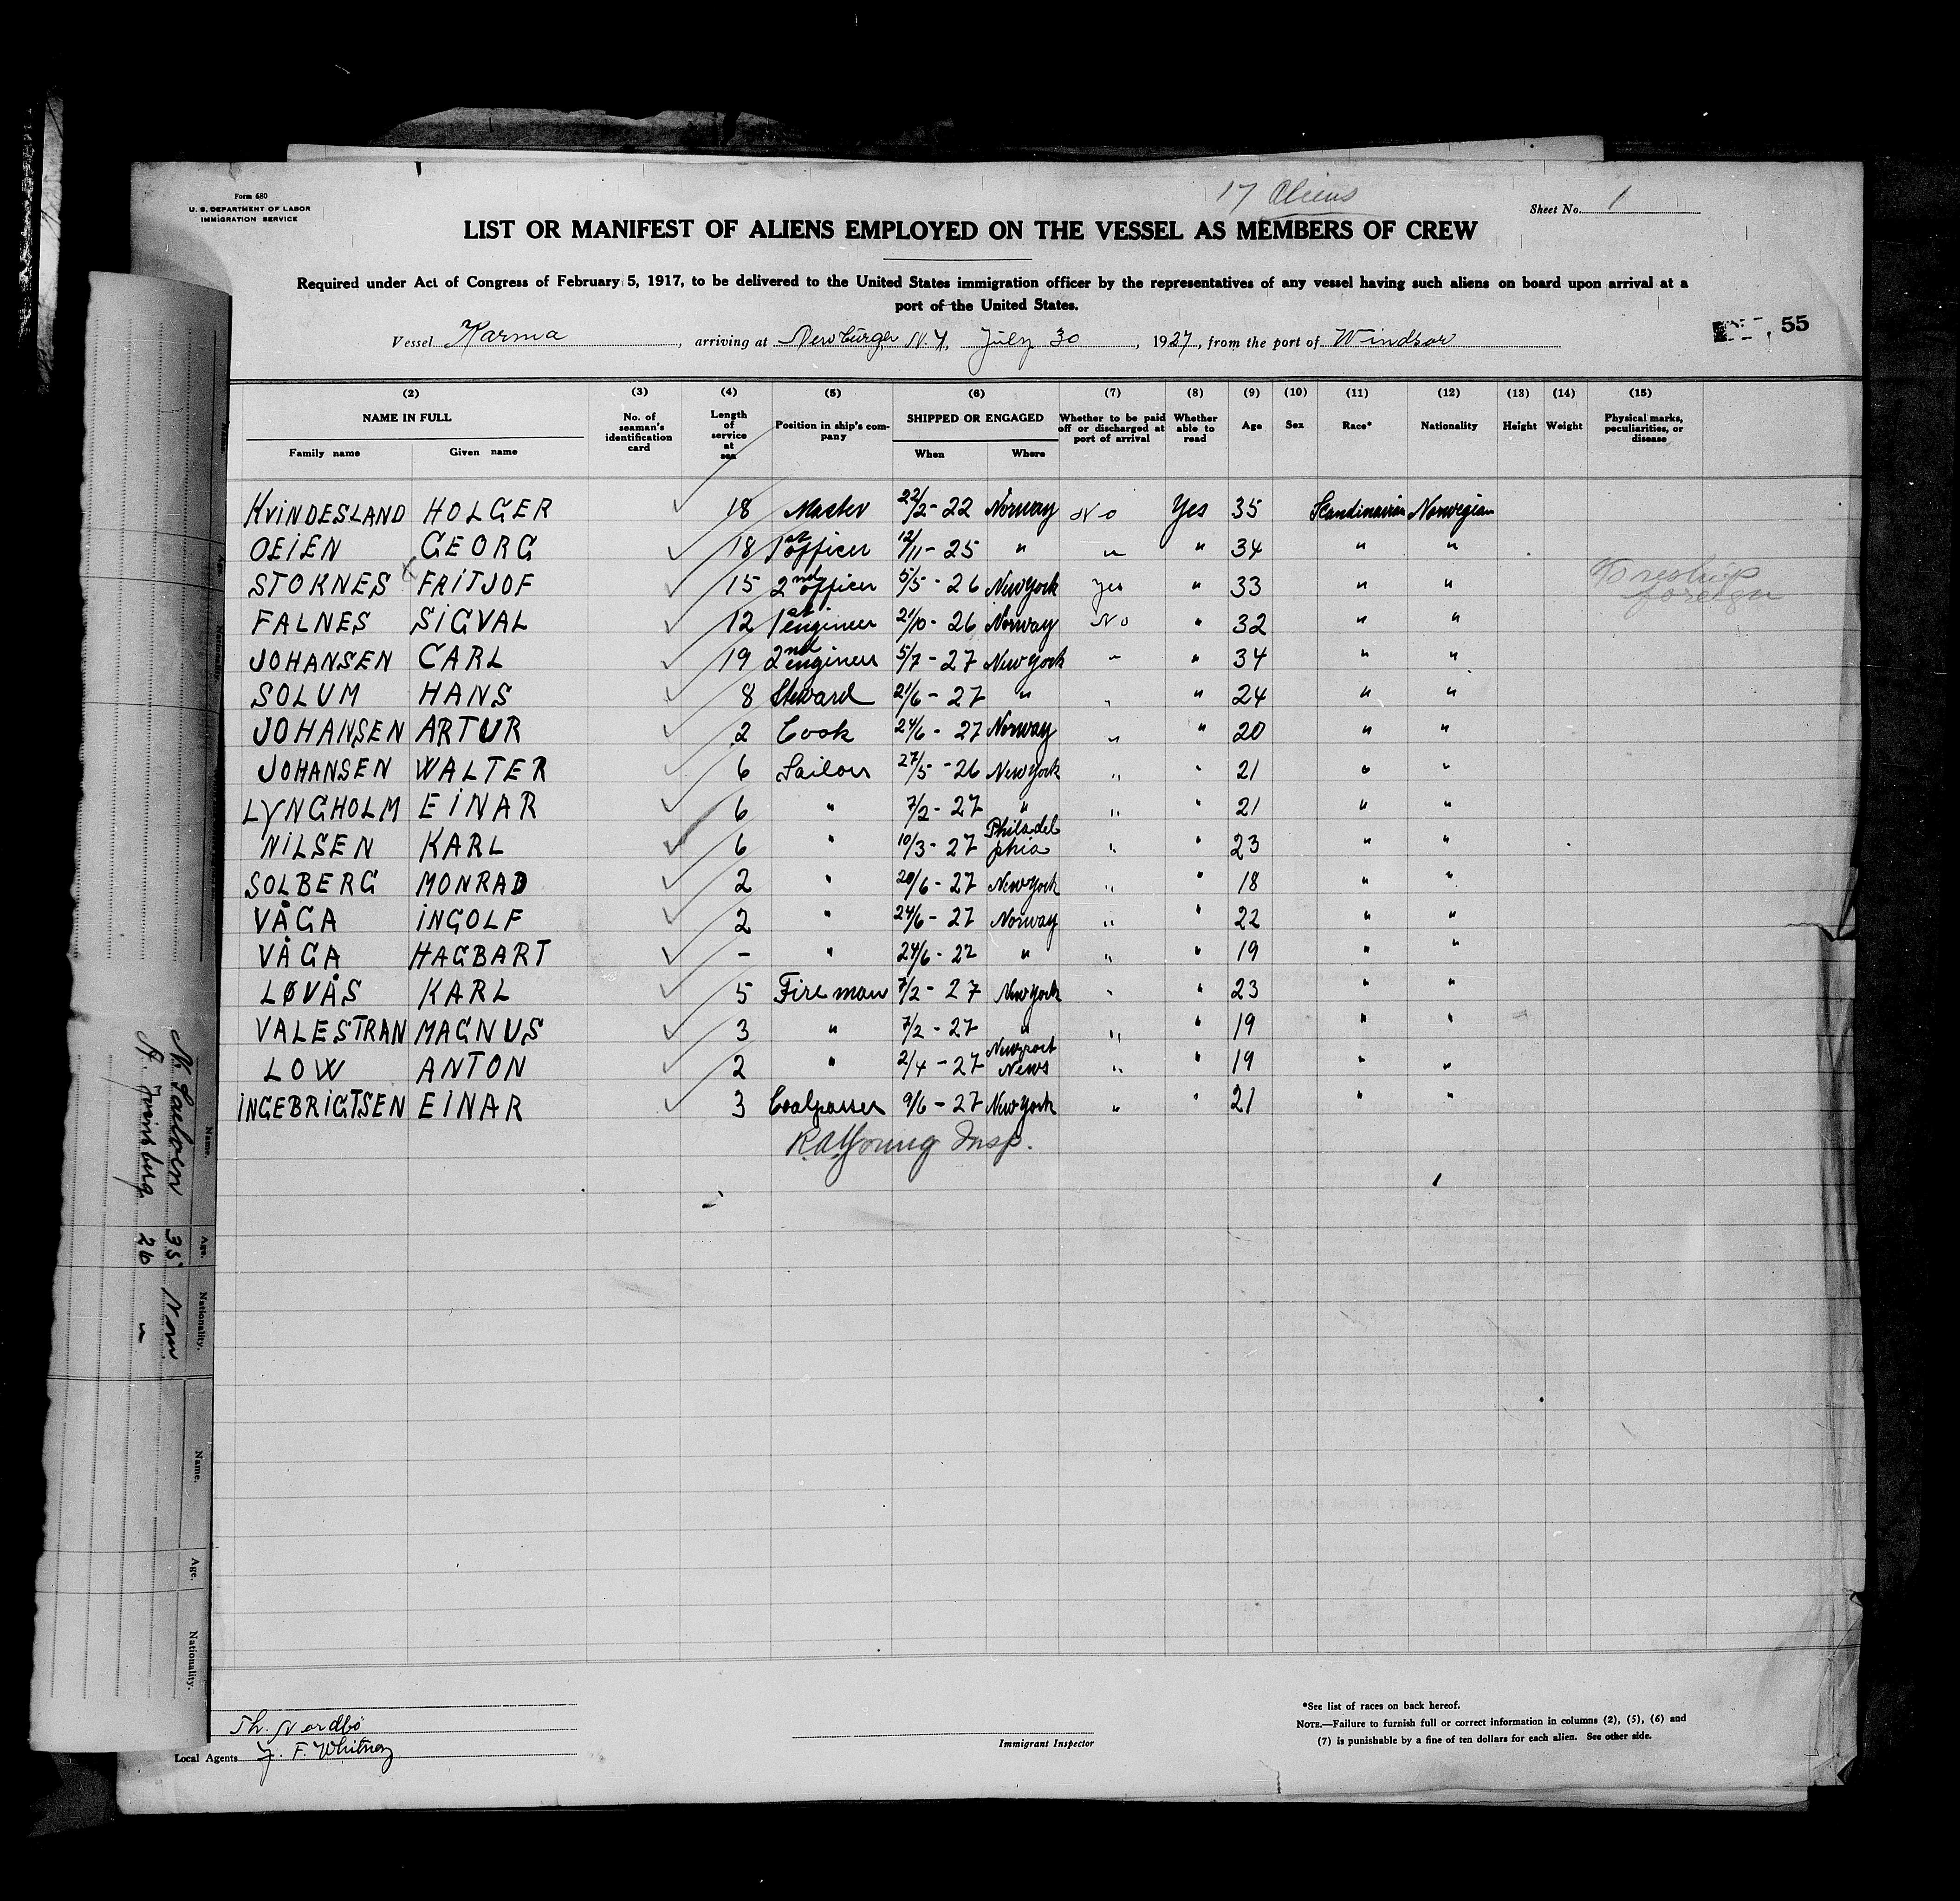 17 Aliens
Form 680
U. S. DEPARTMENT OF LABOR
IMMIGRATION SERVICE
Sheet No. 1
LIST OR MANIFEST OF ALIENS EMPLOYED ON THE VESSEL AS MEMBERS OF CREW
Required under Act of Congress of February 5, 1917, to be delivered to the United States immigration officer by the representatives of any vessel having such aliens on board upon arrival at a
port of the United States.
55
Vessel Karma, arriving at Newburgh N.Y., July 30, 1927, from the port of Windsor
(2) (3) (4) (5) (6) (7) (8) (9) (10) (11) (12) (13) (14) (15)
NAME IN FULL Family name Given name No. of seaman's identification card Length of service at sea Position in ship's company SHIPPED OR ENGAGED When Where Whether to be paid off or discharged at port of arrival Whether able to read Age Sex Race* Nationality Height Weight Physical marks, peculiarities, or disease
KVINDESLAND HOLGER ✓ 18 Master 22/2-22 Norway No Yes 35 Scandinavian Norwegian
OEIEN GEORG ✓ 18 1st officer 12/11-25 " " " 34 " "
STOKNES x FRITJOF ✓ 15 2nd officer 5/5-26 New York Yes " 33 " " To reship foreign
FALNES SIGVAL ✓ 12 1st engineer 21/10-26 Norway No " 32 " "
JOHANSEN CARL ✓ 19 2nd engineer 5/7-27 New York " " 34 " "
SOLUM HANS ✓ 8 Steward 21/6-27 " " " 24 " "
JOHANSEN ARTUR ✓ 2 Cook 24/6-27 Norway " " 20 " "
JOHANSEN WALTER ✓ 6 Sailor 27/5-26 New York " " 21 " "
LYNGHOLM EINAR ✓ 6 " 7/2-27 " " " 21 " "
NILSEN KARL ✓ 6 " 10/3-27 Philadelphia " " 23 " "
SOLBERG MONRAD ✓ 2 " 20/6-27 New York " " 18 " "
VÅGA INGOLF ✓ 2 " 24/6-27 Norway " " 22 " "
VÅGA HAGBART ✓ - " 24/6-27 " " " 19 " "
LØVÅS KARL ✓ 5 Fireman 7/2-27 New York " " 23 " "
VALESTRAN MAGNUS ✓ 3 " 7/2-27 " " " 19 " "
LOW ANTON ✓ 2 " 2/4-27 Newport News " " 19 " "
INGEBRIGTSEN EINAR ✓ 3 Coalpasser 9/6-27 New York " " 21 " "
R.A. Young Insp.
Name. Age. Nationality.
35 Norw
26 "
Name. Age. Nationality.
Th. Nordbö
Local Agents J. F. Whitney
Immigrant Inspector
*See list of races on back hereof.
NOTE.—Failure to furnish full or correct information in columns (2), (5), (6) and
(7) is punishable by a fine of ten dollars for each alien. See other side.